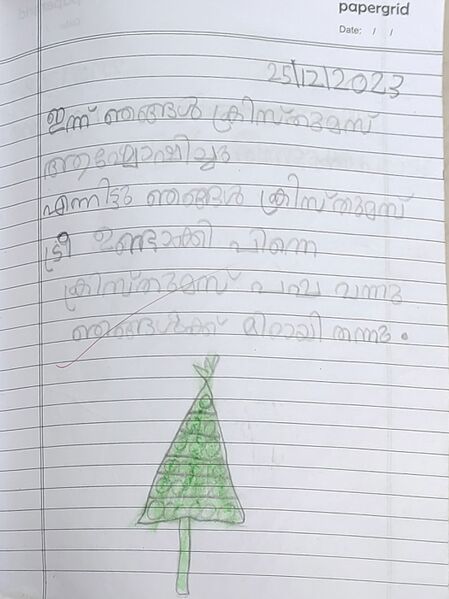 papergrid
Date: / /
25/12/2023
ഇന്ന് ഞങ്ങൾ ക്രിസ്തുമസ്
ആഘോഷിച്ചു
എന്നിട്ടു ഞങ്ങൾ ക്രിസ്തുമസ്
ട്രീ ഉണ്ടാക്കി പിന്നെ
ക്രിസ്തുമസ് പപ്പ വന്നു
ഞങ്ങൾക്ക് മിഠായി തന്നു.